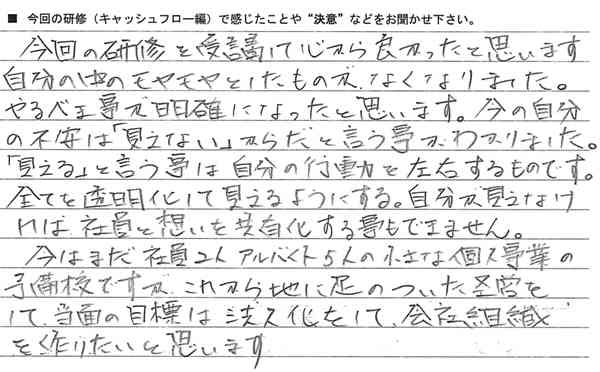 ■ 今回の研修（キャッシュフロー編）で感じたことや“決意”などをお聞かせ下さい。
今回の研修を受講して心から良かったと思います
自分の中のモヤモヤとしたものが、なくなりました。
やるべき事が明確になったと思います。今の自分
の不安は「見えない」からだと言う事がわかりました。
「見える」と言う事は自分の行動を左右するものです。
全てを透明化して見えるようにする。自分が見えなけ
れば社員と想いを共有化する事もできません。
今はまだ社員2人アルバイト5人の小さな個人事業の
予備校ですが、これから地に足のついた経営を
して、当面の目標は法人化をして、会社組織
を作りたいと思います